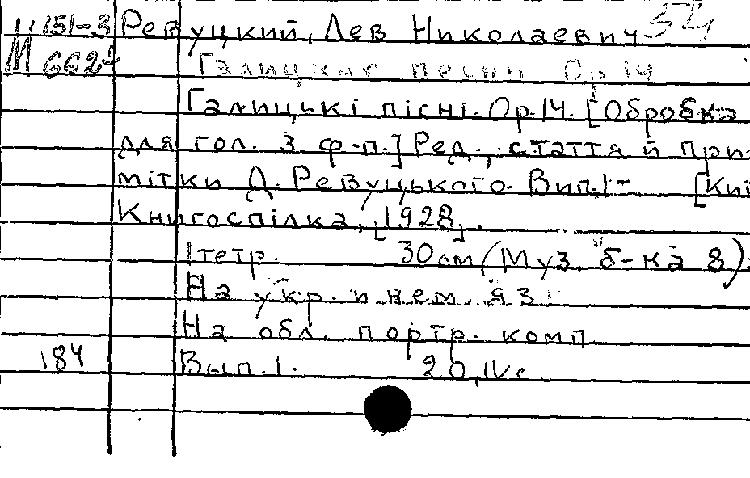 М 151-3 Ревуцкий, Лев Николаевич
М 662 Галицкие песни Ор 14
Галицькі пісні. Ор. 14. [Обробка
для гол. з ф-п.] Ред., стаття й при-
мітки Д. Ревуцького. Вип. 1- [Киї
Книгоспілка, [1928].
1 тетр. 30 см (Муз. б-ка 8)
На укр. и нем. яз.
На обл. портр. комп
184 Вып. 1. 20, IV с